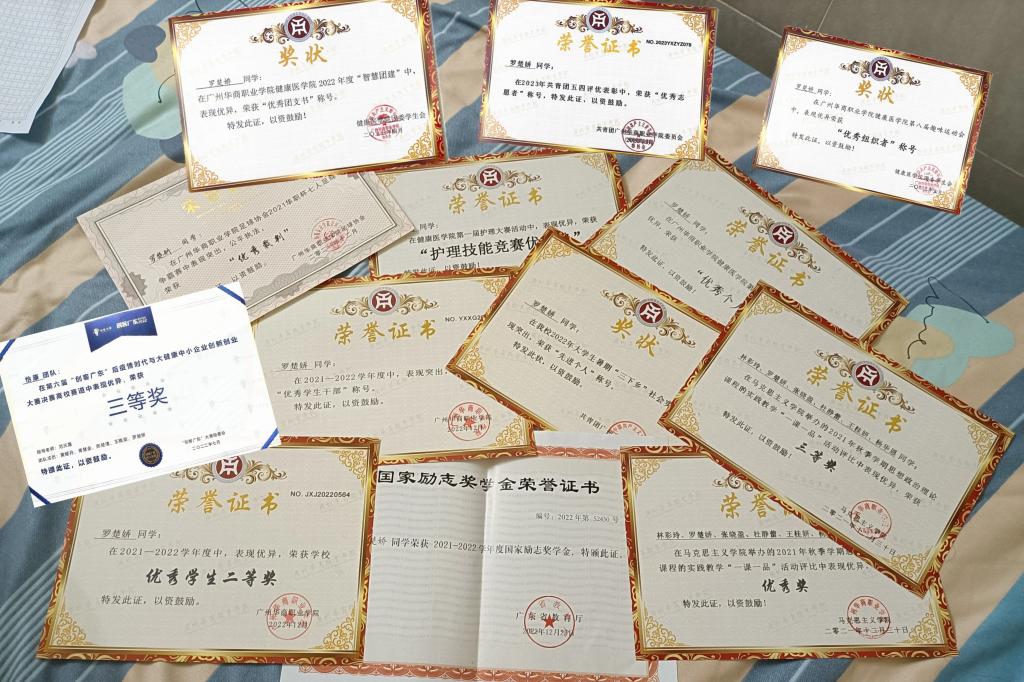 奖状
罗楚娇 同学：
在广州华商职业学院健康医学院2022年度“智慧团建”中，
表现优异，荣获“优秀团支书”称号。
特发此证，以资鼓励！
荣誉证书
NO.2023YXZYZ079
罗楚娇 同学：
在2023年共青团五四评优表彰中，荣获“优秀志
愿者”称号，特发此证，以资鼓励！
共青团广州华商职业学院委员会
奖状
罗楚娇 同学：
在广州华商职业学院健康医学院第八届趣味运动会
中，表现优异荣获
“优秀组织者”称号
特发此证，以资鼓励！
罗楚娇 同学
在广州华商职业学院足球协会2021华职杯七人足
争霸赛中表现突出，公平执法，
荣获
“优秀裁判”
以资鼓励！
荣誉证书
同学：
在健康医学院第一届护理大赛活动中，表现优异，荣获
“护理技能竞赛优
特发此证，以资鼓励！
荣誉证书
罗楚娇 同学：
在广州华商职业学院健康医学院
优异，荣获
“优秀个人
特发此证，以资鼓励！
创客广东
怡康 团队：
在第六届“创客广东”后疫情时代与大健康中小企业创新创业
大赛决赛高校赛道中表现优异，荣获
三等奖
特颁此证，以资鼓励。
“创客广东”大赛组委会
二〇二二年七月
荣誉证书
罗楚娇 同学：
在2021—2022学年度中，表现突出，
“优秀学生干部”称号。
特发此证，以资鼓励！
广州华商职业学院
2022年12月
奖状
罗楚娇 同学：
在我校2022年大学生暑期“三下乡”社会
现突出，荣获“先进个人”称号。
特发此状，以资鼓励！
荣誉证书
林彩玲、罗楚娇、张晓盈、杜静蕾、王桂妍、杨华恩同学：
在马克思主义学院举办的2021年秋季学期思想政治理论
课程的实践教学“一课一品”活动评比中表现优异，荣获
三等奖
特发此证，以资鼓励！
马克思主义学院
荣誉证书
NO. JXJ20220564
罗楚娇 同学：
在2021—2022学年度中，表现优异，荣获学校
优秀学生二等奖
特发此证，以资鼓励。
广州华商职业学院
2022年12月
国家励志奖学金荣誉证书
编号：2022年第 52430 号
娇 同学荣获 2021-2022学年度国家励志奖学金，特颁此证。
广东省教育厅
2022年12月
荣誉
林彩玲、罗楚娇、张晓盈、杜静蕾、王桂妍、
在马克思主义学院举办的2021年秋季学期思
课程的实践教学“一课一品”活动评比中表现优异，
优秀奖
特发此证，以资鼓励！
马克思主义学院
二〇二一年十二月三十日